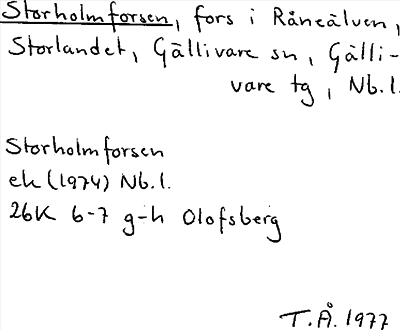 Storholmforsen, fors i Råneälven,
Storlandet, Gällivare sn, Gälli-
vare tg, Nb.l.
Storholmforsen
ek (1974) Nb.l.
26K 6-7 g-h Olofsberg
T.Å. 1977